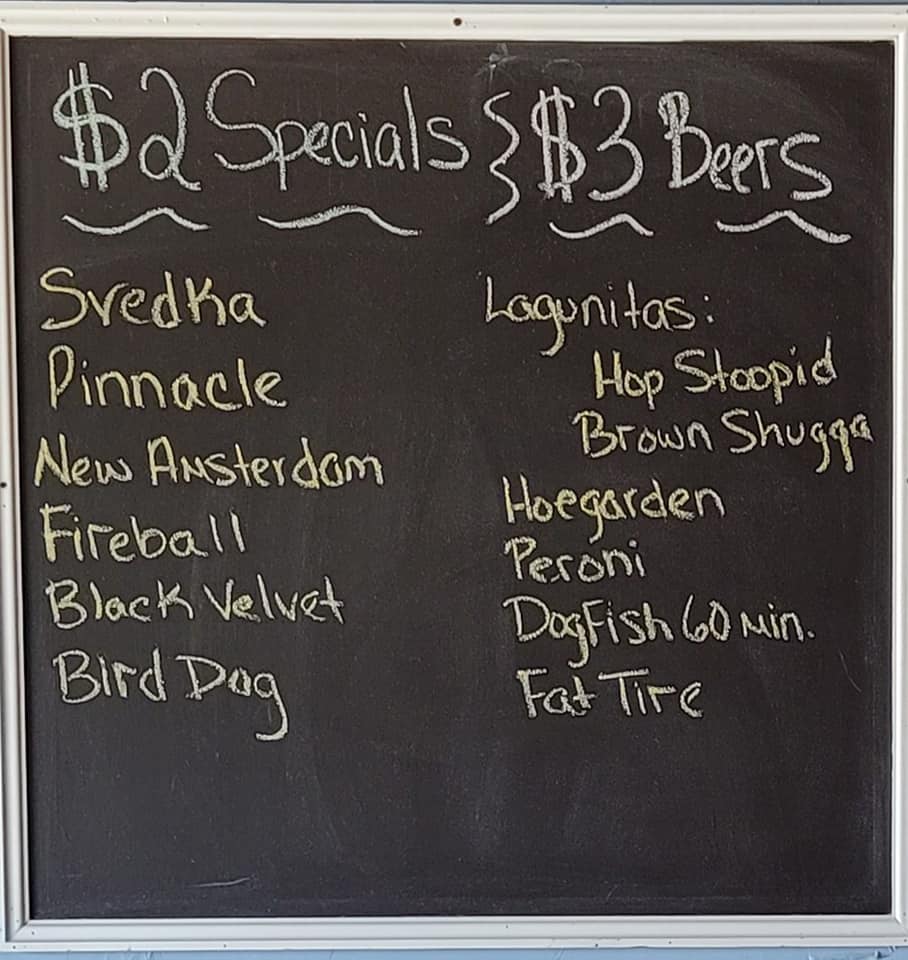 $2 Specials } $3 Beers
Svedka
Pinnacle
New Amsterdam
Fireball
Black Velvet
Bird Dog
Lagunitas:
Hop Stoopid
Brown Shugga
Hoegarden
Peroni
DogFish 60 Min.
Fat Tire